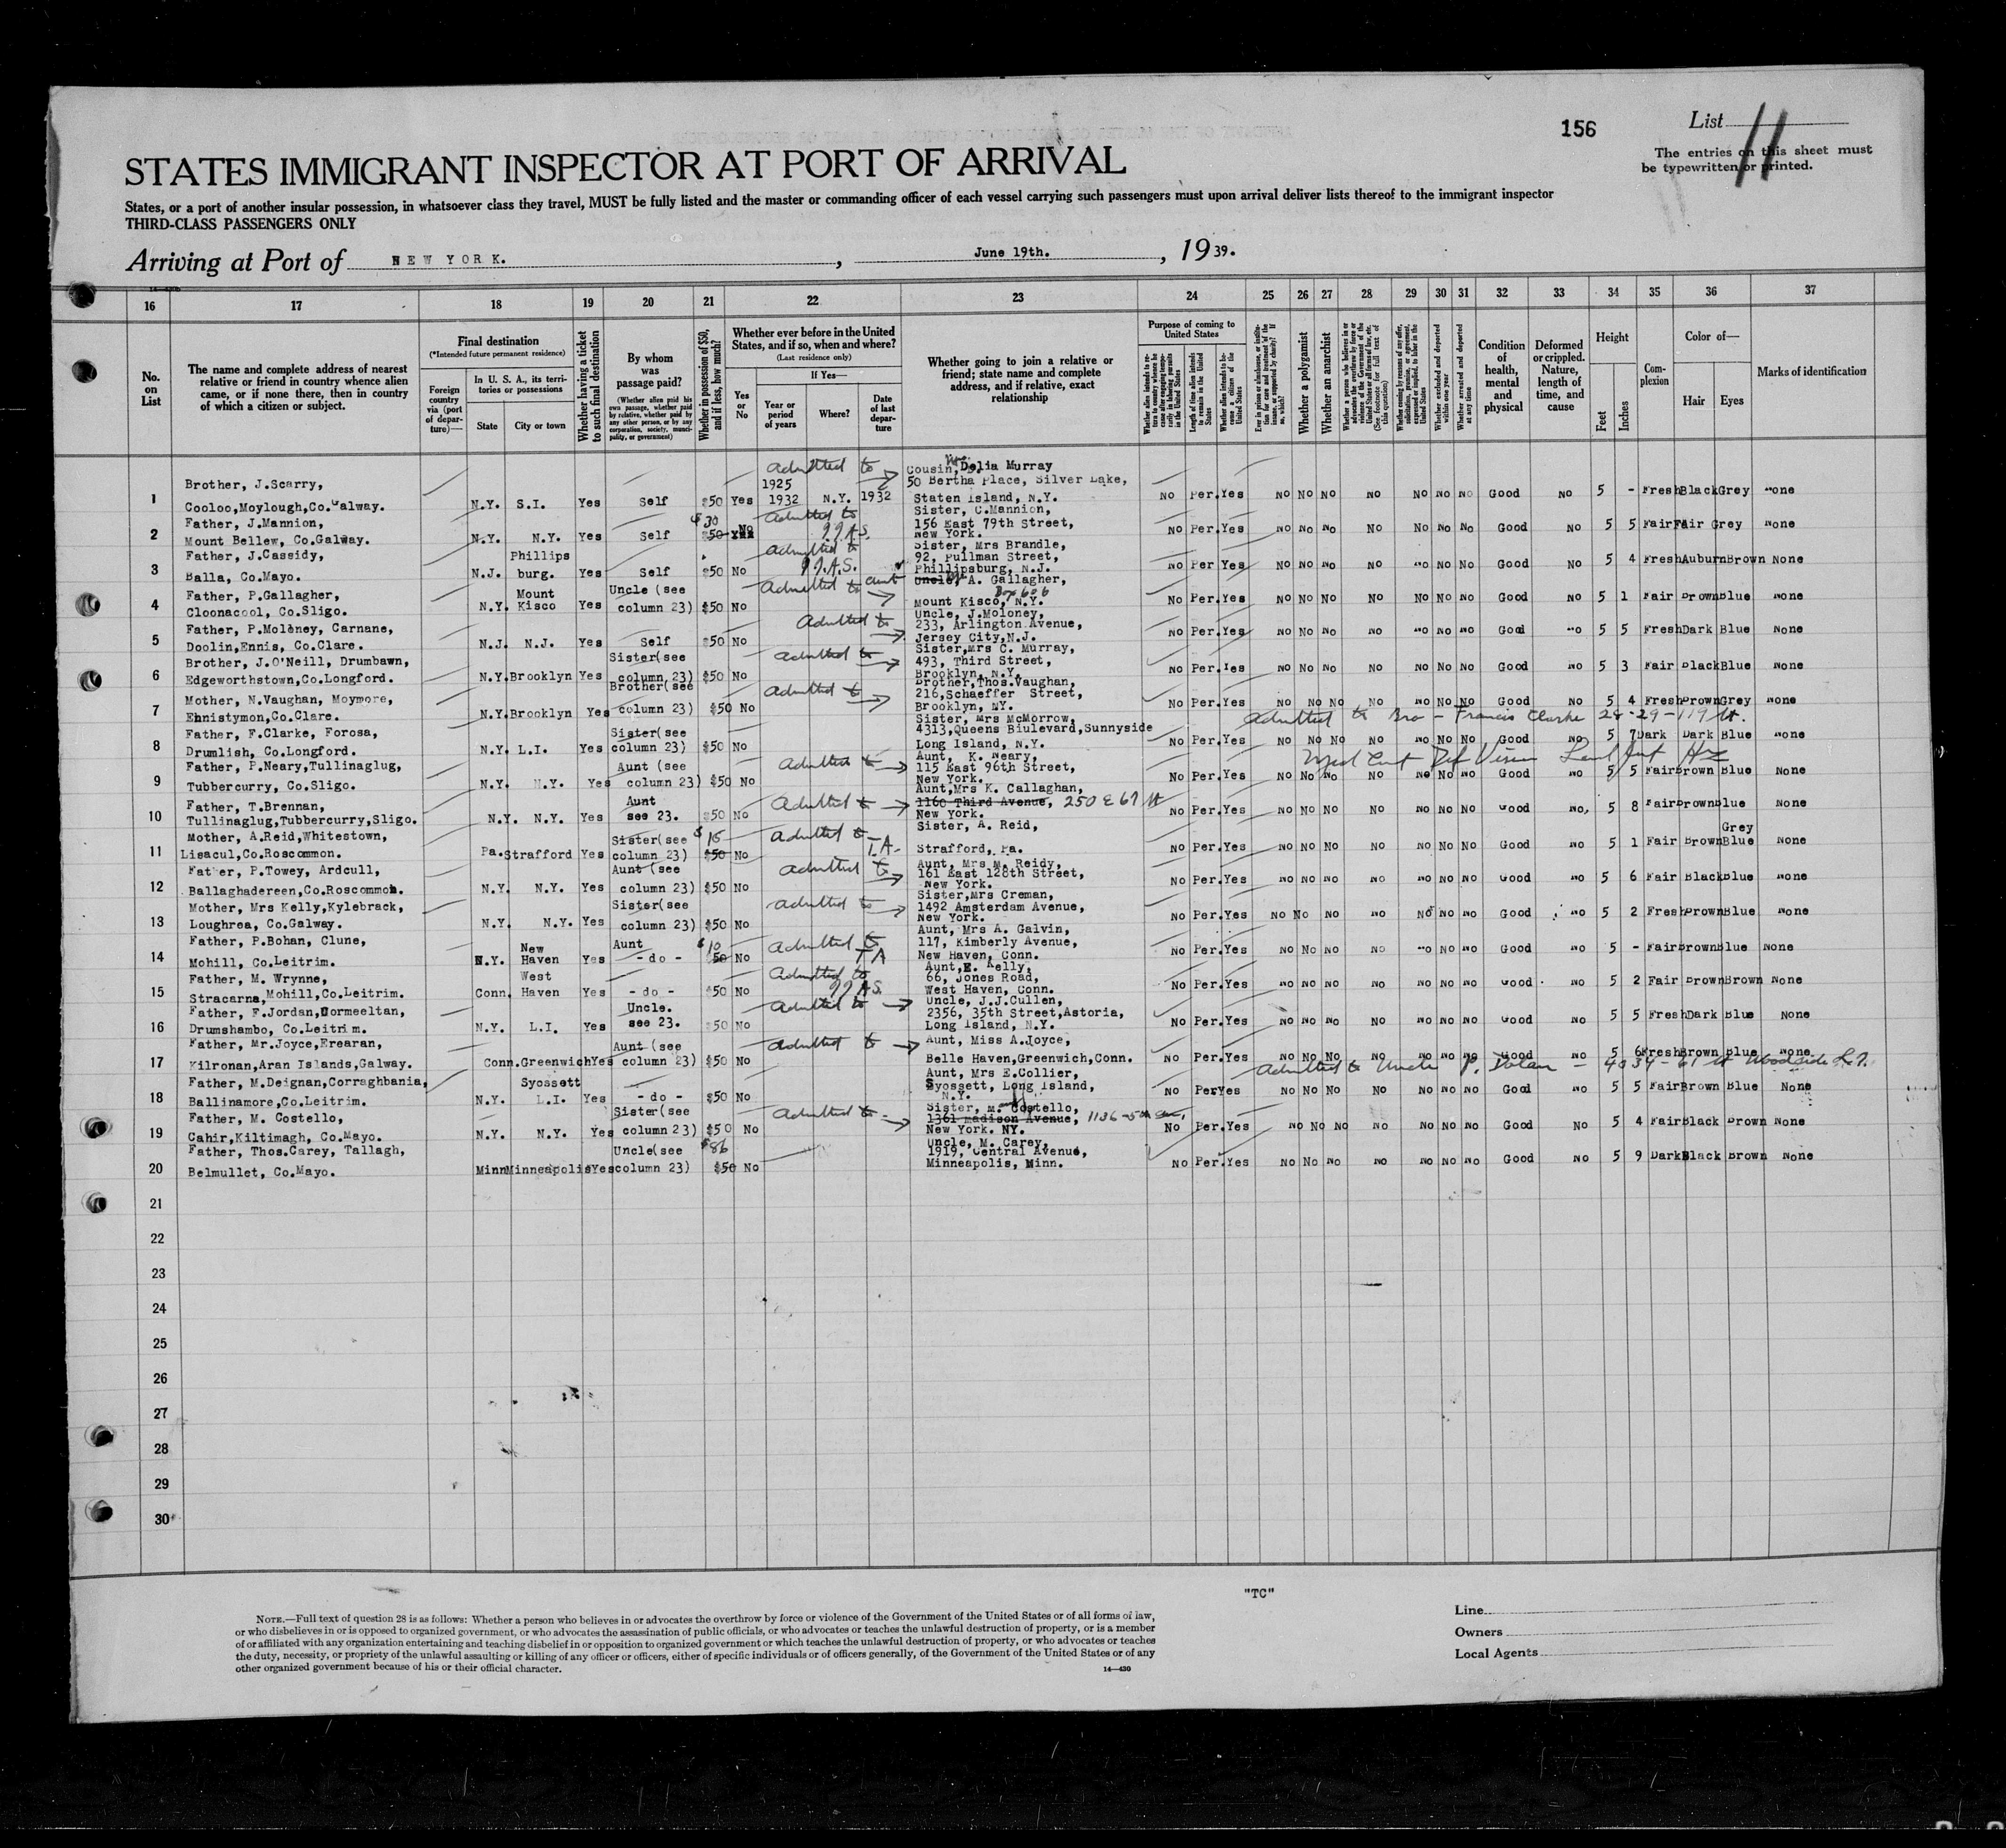 156
List 11
The entries on this sheet must
be typewritten or printed.
STATES IMMIGRANT INSPECTOR AT PORT OF ARRIVAL
States, or a port of another insular possession, in whatsoever class they travel, MUST be fully listed and the master or commanding officer of each vessel carrying such passengers must upon arrival deliver lists thereof to the immigrant inspector
THIRD-CLASS PASSENGERS ONLY
Arriving at Port of NEW YORK. , June 19th. , 19 39.
16 17 18 19 20 21 22 23 24 25 26 27 28 29 30 31 32 33 34 35 36 37
No. on List
The name and complete address of nearest
relative or friend in country whence alien
came, or if none there, then in country
of which a citizen or subject.
Final destination
(*Intended future permanent residence)
Foreign country via (port of departure)—
In U. S. A., its territories or possessions
State City or town
Whether having a ticket to such final destination
By whom was passage paid?
(Whether alien paid his own passage, whether paid by relative, whether paid by any other person, or by any corporation, society, municipality, or government)
Whether in possession of $50, and if less, how much?
Whether ever before in the United States, and if so, when and where?
(Last residence only)
Yes or No
If Yes—
Year or period of years
Where?
Date of last departure
Whether going to join a relative or
friend; state name and complete
address, and if relative, exact
relationship
Purpose of coming to United States
Length of time alien intends to remain in the United States
Whether alien intends to become a citizen of the United States
Whether a polygamist
Whether an anarchist
Whether excluded and deported within one year
Whether arrested and deported at any time
Condition of health, mental and physical
Deformed or crippled. Nature, length of time, and cause
Height
Feet Inches
Complexion
Color of—
Hair Eyes
Marks of identification
1 Brother, J.Scarry, Cooloc,Moylough,Co.Galway. N.Y. S.I. Yes Self $50 Yes 1925 1932 N.Y. 1932 Admitted to Cousin, Mrs. Delia Murray 50 Bertha Place, Silver Lake, Staten Island, N.Y. No Per. Yes No No No No No No No Good No 5 - Fresh Black Grey None
2 Father, J.Mannion, Mount Bellew, Co.Galway. N.Y. N.Y. Yes Self $30 $50 No Yes Admitted to Sister, C.Mannion, 156 East 79th Street, New York. No Per. Yes No No No No No No No Good No 5 5 Fair Fair Grey None
3 Father, J.Cassidy, Balla, Co.Mayo. N.J. Phillips burg. Yes Self $50 No Admitted to Sister, Mrs Brandle, 92, Pullman Street, Phillipsburg, N.J. No Per Yes No No No No No No No Good No 5 4 Fresh Auburn Brown None
4 Father, P.Gallagher, Cloonacool, Co.Sligo. N.Y. Mount Kisco Yes Uncle (see column 23) $50 No Admitted to aunt Uncle, A. Gallagher, Box 606 Mount Kisco, N.Y. No Per. Yes No No No No No No No Good No 5 1 Fair Brown Blue None
5 Father, P.Moloney, Carnane, Doolin,Ennis, Co.Clare. N.J. N.J. Yes Self $50 No Admitted to Uncle, J.Moloney, 233, Arlington Avenue, Jersey City,N.J. No Per. Yes No No No No No No No Good No 5 5 Fresh Dark Blue None
6 Brother, J.O'Neill, Drumbawn, Edgeworthstown,Co.Longford. N.Y. Brooklyn Yes Sister(see column 23) $50 No Admitted to Sister,Mrs C. Murray, 493, Third Street, Brooklyn, N.Y. No Per. Yes No No No No No No No Good No 5 3 Fair Black Blue None
7 Mother, N.Vaughan, Moymore, Ehnistymon,Co.Clare. N.Y. Brooklyn Yes Brother(see column 23) $50 No Admitted to Brother,Thos.Vaughan, 216,Schaeffer Street, Brooklyn, NY. No Per. Yes No No No No No No No Good No 5 4 Fresh Brown Grey None
Admitted to Bro - Francis Clarke 28-29-119 St.
8 Father, F.Clarke, Forosa, Drumlish, Co.Longford. N.Y. L.I. Yes Sister(see column 23) $50 No Sister, Mrs McMorrow, 4313,Queens Biulevard,Sunnyside Long Island, N.Y. No Per. Yes No No No No No No No Good No 5 7 Dark Dark Blue None
Med Cert Def Vision
9 Father, P.Neary,Tullinaglug, Tubbercurry, Co.Sligo. N.Y. N.Y. Yes Aunt (see column 23) $50 No Admitted to Aunt, K. Neary, 115 East 96th Street, New York. No Per. Yes No No No No No No No Good No 5 5 Fair Brown Blue None
10 Father, T.Brennan, Tullinaglug,Tubbercurry,Sligo. N.Y. N.Y. Yes Aunt see 23. $50 No Admitted to Aunt,Mrs K. Callaghan, 1160 Third Avenue, 250 E 67 St New York. No Per. Yes No No No No No No No Good No, 5 8 Fair Brown Blue None
11 Mother, A.Reid,Whitestown, Lisacul,Co.Roscommon. Pa. Strafford Yes Sister(see column 23) $15 $50 No Admitted to T.A. Sister, A. Reid, Strafford, Pa. No Per. Yes No No No No No No No Good No 5 1 Fair Brown Grey Blue None
12 Father, P.Towey, Ardcull, Ballaghadereen,Co.Roscommon. N.Y. N.Y. Yes Aunt (see column 23) $50 No Admitted to Aunt, Mrs M. Reidy, 161 East 128th Street, New York. No Per. Yes No No No No No No No Good No 5 6 Fair Black Blue None
13 Mother, Mrs Kelly,Kylebrack, Loughrea, Co.Galway. N.Y. N.Y. Yes Sister(see column 23) $50 No Admitted to Sister,Mrs Creman, 1492 Amsterdam Avenue, New York. No Per. Yes No No No No No No No Good No 5 2 Fresh Brown Blue None
14 Father, P.Bohan, Clune, Mohill, Co.Leitrim. N.Y. New Haven Yes Aunt - do - $10 $50 No Admitted to T A Aunt, Mrs A. Galvin, 117, Kimberly Avenue, New Haven, Conn. No Per. Yes No No No No No No No Good No 5 - Fair Brown Blue None
15 Father, M. Wrynne, Stracarna,Mohill,Co.Leitrim. Conn. West Haven Yes - do - $50 No Admitted to Aunt,E. Kelly, 66, Jones Road, West Haven, Conn. No Per. Yes No No No No No No No Good No 5 2 Fair Brown Brown None
16 Father, F.Jordan,Dormeeltan, Drumshambo, Co.Leitrim. N.Y. L.I. Yes Uncle. see 23. $50 No Admitted to Uncle, J.J.Cullen, 2356, 35th Street,Astoria, Long Island, N.Y. No Per. Yes No No No No No No No Good No 5 5 Fresh Dark Blue None
17 Father, Mr.Joyce,Erearan, Kilronan,Aran Islands,Galway. Conn. Greenwich Yes Aunt (see column 23) $50 No Admitted to Aunt, Miss A.Joyce, Belle Haven,Greenwich,Conn. No Per. Yes No No No No No No No Good No 5 6 Fresh Brown Blue None
Admitted to Uncle P. Dolan - 4034-61 St Woodside L.I.
18 Father, M.Deignan,Corraghbania, Ballinamore,Co.Leitrim. N.Y. Syossett L.I. Yes - do - $50 No Aunt, Mrs E.Collier, Syossett, Long Island, N.Y. No Per Yes No No No No No No No Good No 5 5 Fair Brown Blue None
19 Father, M. Costello, Cahir,Kiltimagh, Co.Mayo. N.Y. N.Y. Yes Sister(see column 23) $50 No Admitted to Sister, M. Costello, 1361 Madison Avenue, 1136-5th Ave, New York. NY. No Per. Yes No No No No No No No Good No 5 4 Fair Black Brown None
20 Father, Thos.Carey, Tallagh, Belmullet, Co.Mayo. Minn Minneapolis Yes Uncle(see column 23) $86 $50 No Uncle, M. Carey, 1919, Central Avenue, Minneapolis, Minn. No Per. Yes No No No No No No No Good No 5 9 Dark Black Brown None
21
22
23
24
25
26
27
28
29
30
"TC"
NOTE.—Full text of question 28 is as follows: Whether a person who believes in or advocates the overthrow by force or violence of the Government of the United States or of all forms of law,
or who disbelieves in or is opposed to organized government, or who advocates the assassination of public officials, or who advocates or teaches the unlawful destruction of property, or is a member
of or affiliated with any organization entertaining and teaching disbelief in or opposition to organized government or which teaches the unlawful destruction of property, or who advocates or teaches
the duty, necessity, or propriety of the unlawful assaulting or killing of any officer or officers, either of specific individuals or of officers generally, of the Government of the United States or of any
other organized government because of his or their official character.
14—430
Line
Owners
Local Agents